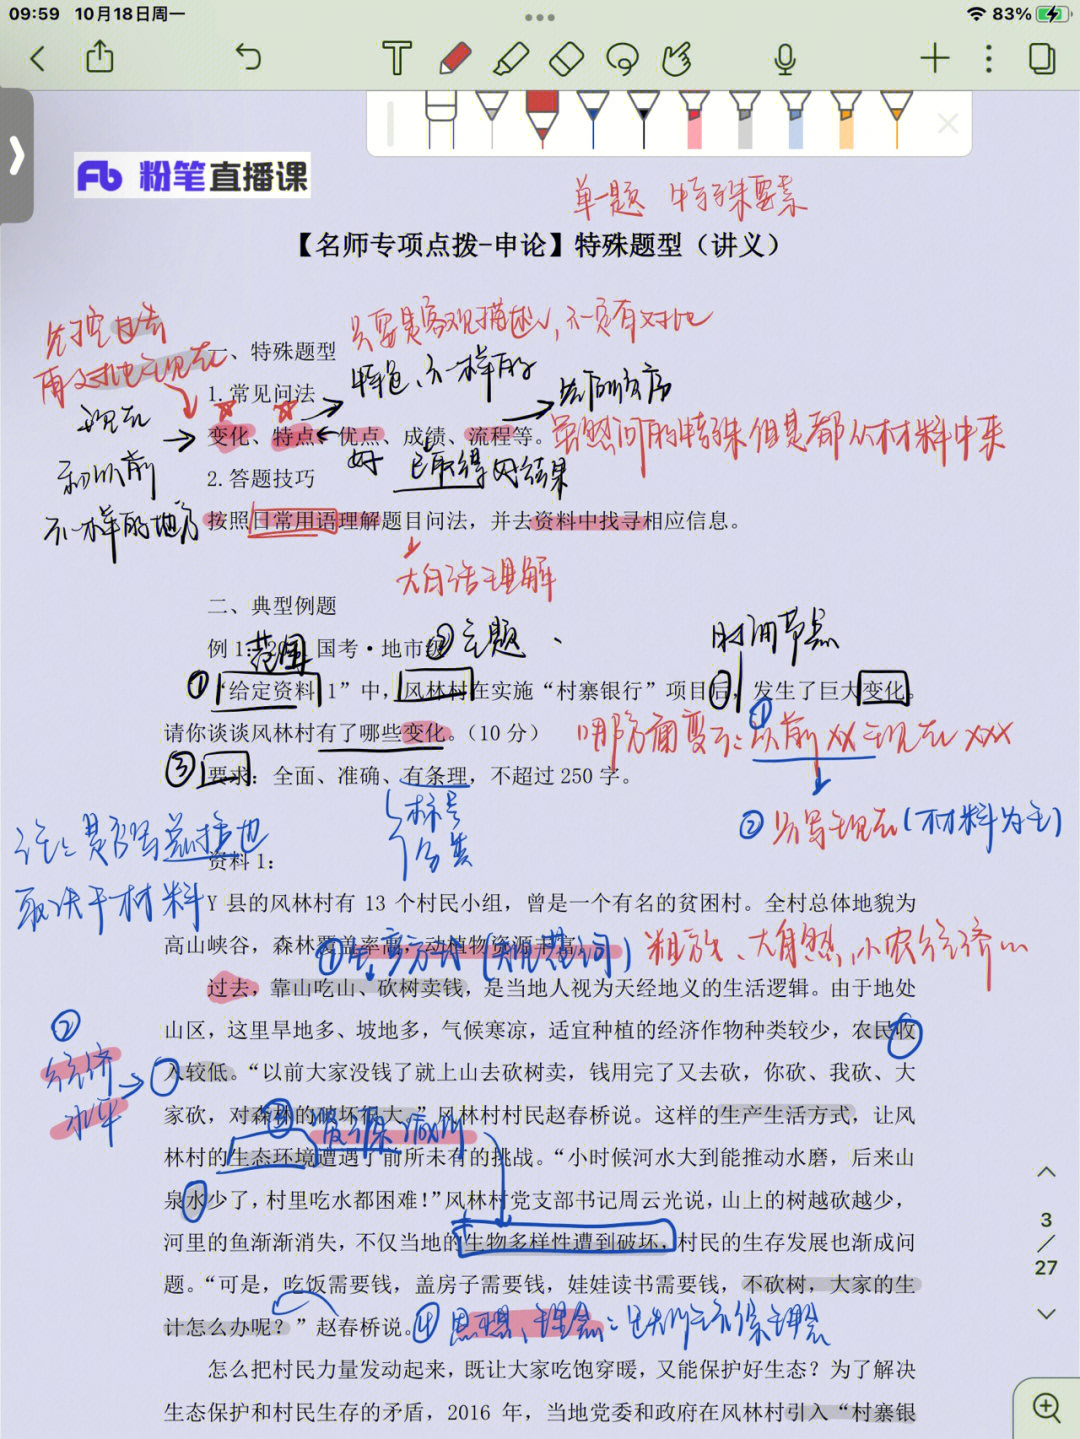 09:59 10月18日周一
83%
粉笔直播课
单一题 中特殊要素
【名师专项点拨-申论】特殊题型（讲义）
先找过去
再对比现在
只要是客观描述、不一定有对比
一、特殊题型
特色、不一样的
1.常见问法
现在
变化、特点、优点、成绩、流程等。
虽然问的特殊但是都从材料中来
好
已取得好结果
和以前
2.答题技巧
不一样的地方
按照日常用语理解题目问法，并去资料中找寻相应信息。
大白话理解
二、典型例题
例1 国考·地市级
范围
②主题
时间节点
①“给定资料1”中，风林村在实施“村寨银行”项目后，发生了巨大变化。
请你谈谈风林村有了哪些变化。（10分）
哪方面变了：以前xx现在xxx
③要求：全面、准确、有条理，不超过250字。
标号
分类
②只写现在（材料为主）
注：是否写总括句也
取决于材料
资料1：
Y县的风林村有13个村民小组，曾是一个有名的贫困村。全村总体地貌为
高山峡谷，森林覆盖率高，动植物资源丰富。
粗放、大自然、小农经济…
过去，靠山吃山、砍树卖钱，是当地人视为天经地义的生活逻辑。由于地处
山区，这里旱地多、坡地多，气候寒凉，适宜种植的经济作物种类较少，农民收
②
经济
水平
入较低。“以前大家没钱了就上山去砍树卖，钱用完了又去砍，你砍、我砍、大
家砍，对森林的破坏很大。”风林村村民赵春桥说。这样的生产生活方式，让风
林村的生态环境遭遇了前所未有的挑战。“小时候河水大到能推动水磨，后来山
泉水少了，村里吃水都困难！”风林村党支部书记周云光说，山上的树越砍越少，
河里的鱼渐渐消失，不仅当地的生物多样性遭到破坏，村民的生存发展也渐成问
题。“可是，吃饭需要钱，盖房子需要钱，娃娃读书需要钱，不砍树，大家的生
计怎么办呢？”赵春桥说。
④思想、理念：
怎么把村民力量发动起来，既让大家吃饱穿暖，又能保护好生态？为了解决
生态保护和村民生存的矛盾，2016年，当地党委和政府在风林村引入“村寨银
3
27